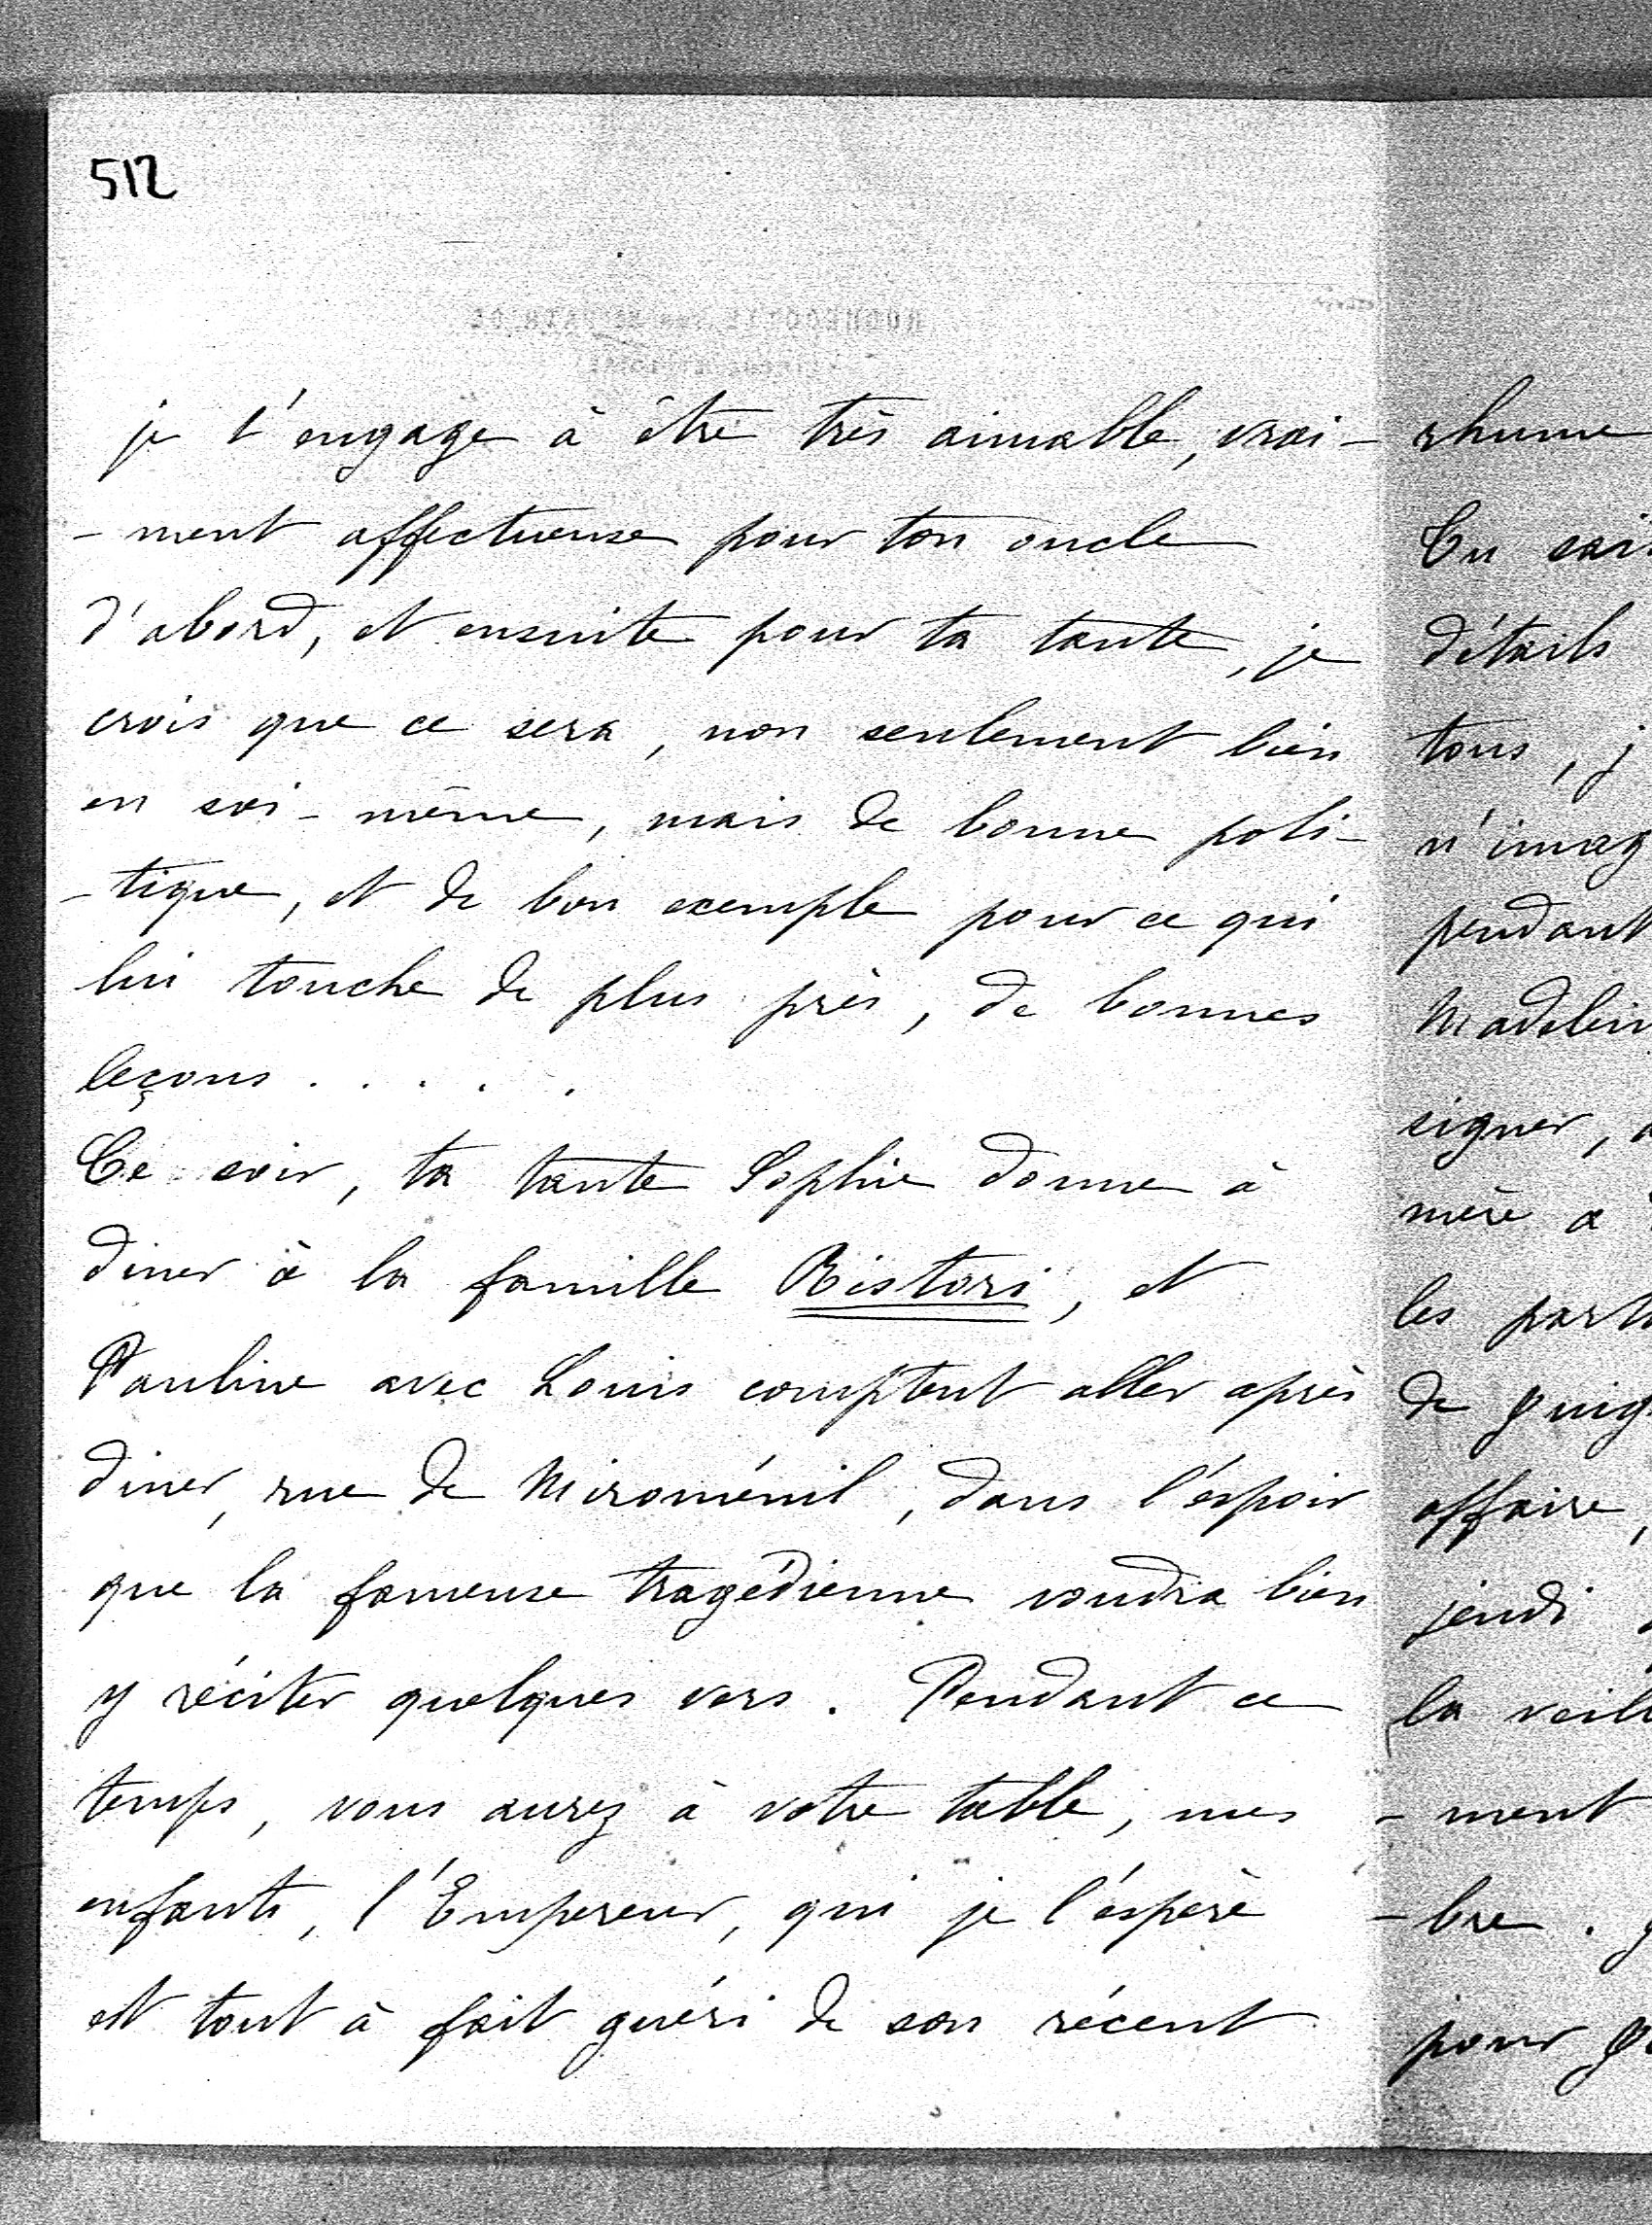 512
je t'engage à être très aimable, vrai-
-ment affectueuse pour ton oncle
d'abord, et ensuite pour ta tante, je
crois que ce sera, non seulement bien
en soi-même, mais de bonne poli-
-tique, et de bon exemple pour ce qui
lui touche de plus près, de bonnes
leçons . . . . .
Ce soir, ta tante Sophie donne à
diner à la famille Ristori, et
Pauline avec Louis comptent aller après
diner, rue de Miroménil, dans l'éspoir
que la fameuse tragédienne voudra bien
y réciter quelques vers. Pendant ce
temps, vous aurez à votre table, mes
enfants, l'Empereur, qui je l'éspère
est tout à fait guéri de son récent
rhume
Tu sais
détails
tous, j
n'imag
pendant
Madelein
signer,
mère a
les part
de
affaire,
jeudi
la veill
-ment
-bre.
pour